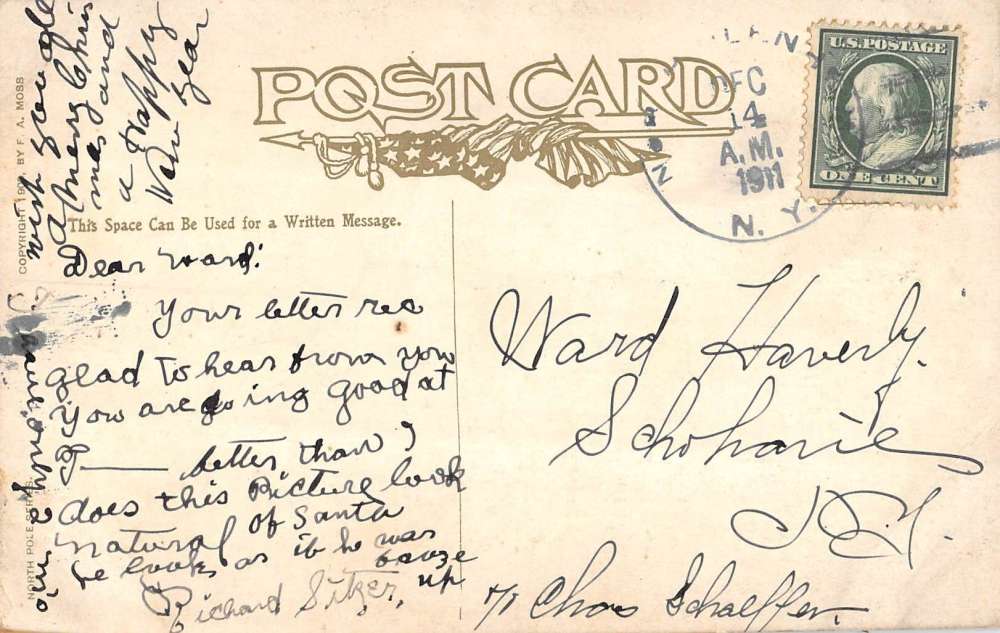 POST CARD
U.S. POSTAGE
ONE CENT
DEC
14
A.M.
1911
N. Y.
This Space Can Be Used for a Written Message.
Dear Ward:
Your letter rec
glad to hear from you
You are going good at
better than I
does this Picture look
natural of Santa
he looks as if he was
up
Richard Sitzer,
wish you all
a Merry Chris
mas and
a Happy
New Year
Ward Haverly.
Schoharie
N.Y.
Chas Schaeffer.
COPYRIGHT BY F. A. MOSS
NORTH POLE SERIES